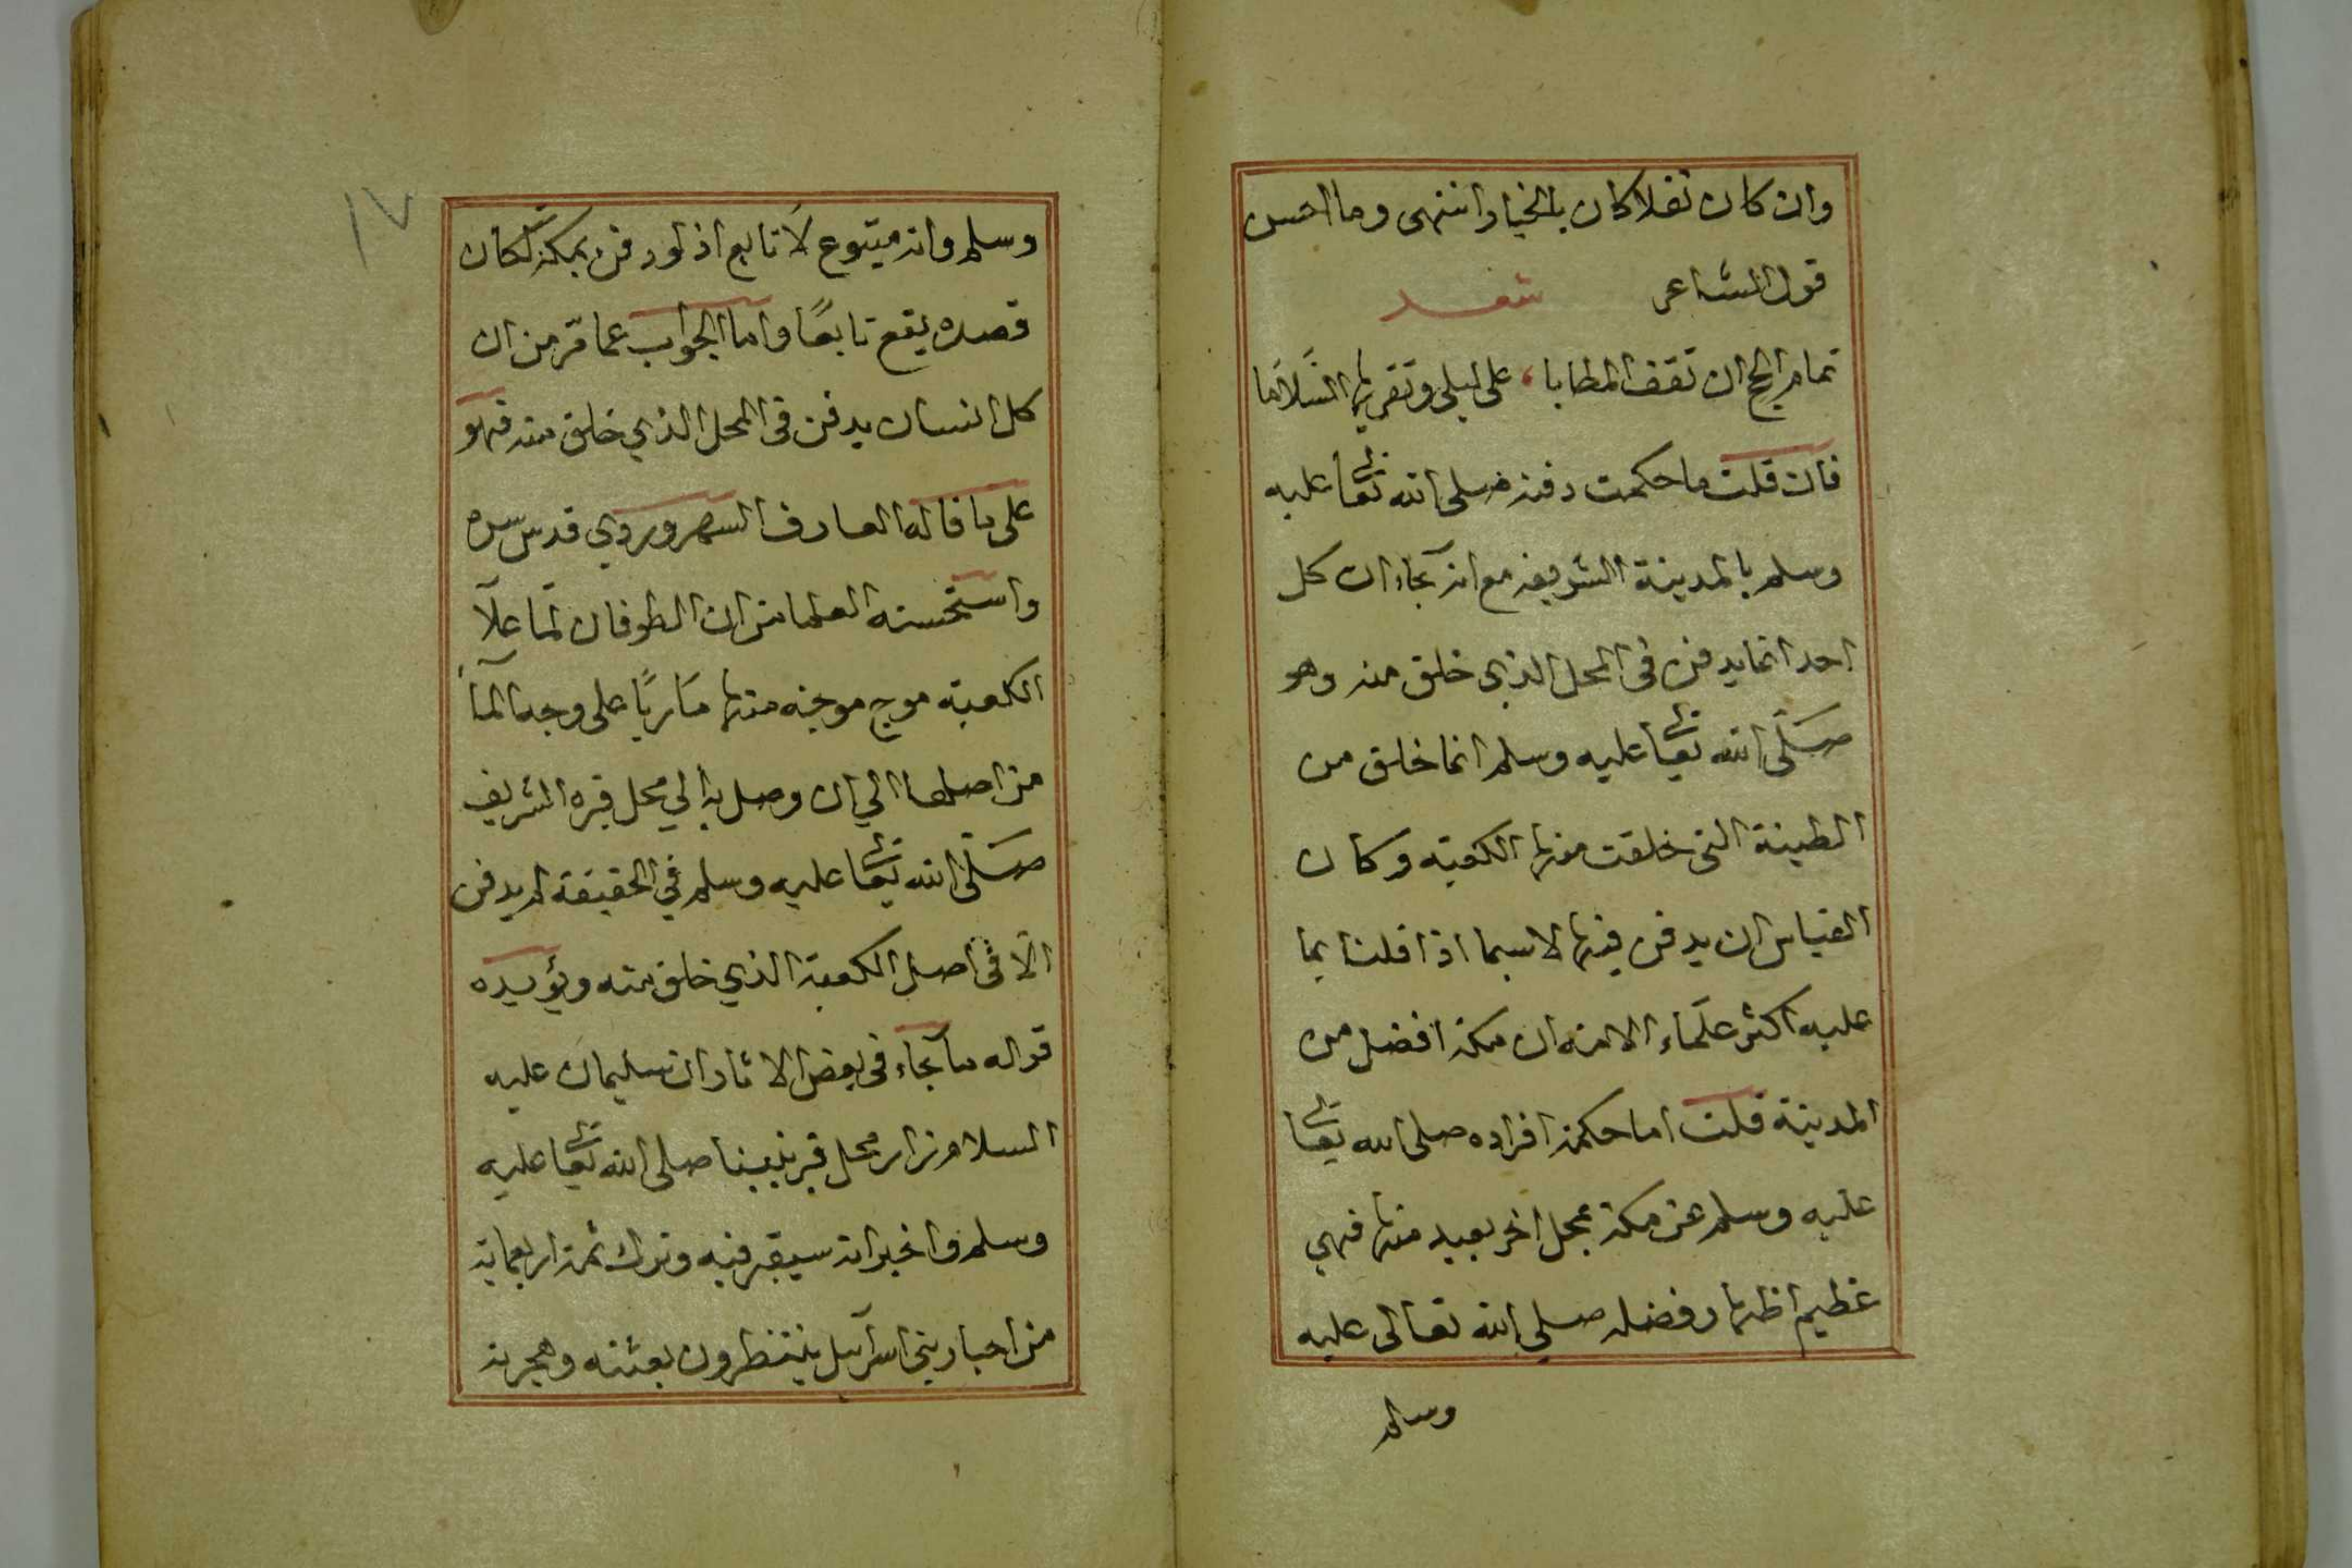 وان كان نفلا كان بالخيار انتهى وما احسن
قول الشاعر شعر
تمام الحج ان تقف المطايا، على ليلى وتقريها السلاما
فان قلت ما حكمت دفنه صلى الله تعالى عليه
وسلم بالمدينة الشريفه مع انه جاء ان كل
احد انما يدفن فى المحل الذي خلق منه وهو
صلى الله تعالى عليه وسلم انما خلق من
الطينة التى خلقت منها الكعبة وكان
القياس ان يدفن فيها لاسيما اذا قلنا بما
عليه اكثر علماء الامة ان مكة افضل من
المدينة قلت اما حكمة افراده صلى الله تعالى
عليه وسلم عن مكة بمحل اخر بعيد منها فهي
عظيم اظهار فضله صلى الله تعالى عليه
وسلم
١٧
وسلم وانه متبوع لا تابع اذ لو دفن بمكة لكان
قصده يقع تابعًا واما الجواب عما مرّ من ان
كل انسان يدفن فى المحل الذي خلق منه فهو
على ما قاله العارف السهروردي قدس سره
واستحسنه العلما من ان الطوفان لمّا علا
الكعبة موج موجة منها على وجه الماء
من اصلها الي ان وصل به الي محل قبره الشريف
صلى الله تعالى عليه وسلم في الحقيقة لم يدفن
الا فى اصل الكعبة الذي خلق منه ويؤيده
قوله ما جاء فى بعض الاثار ان سليمان عليه
السلام زار محل قبر نبينا صلى الله تعالى عليه
وسلم واخبر انه سيقبر فيه وترك ثمة اربعماية
من احبار بني اسرآئيل ينتظرون بعثته وهجرته